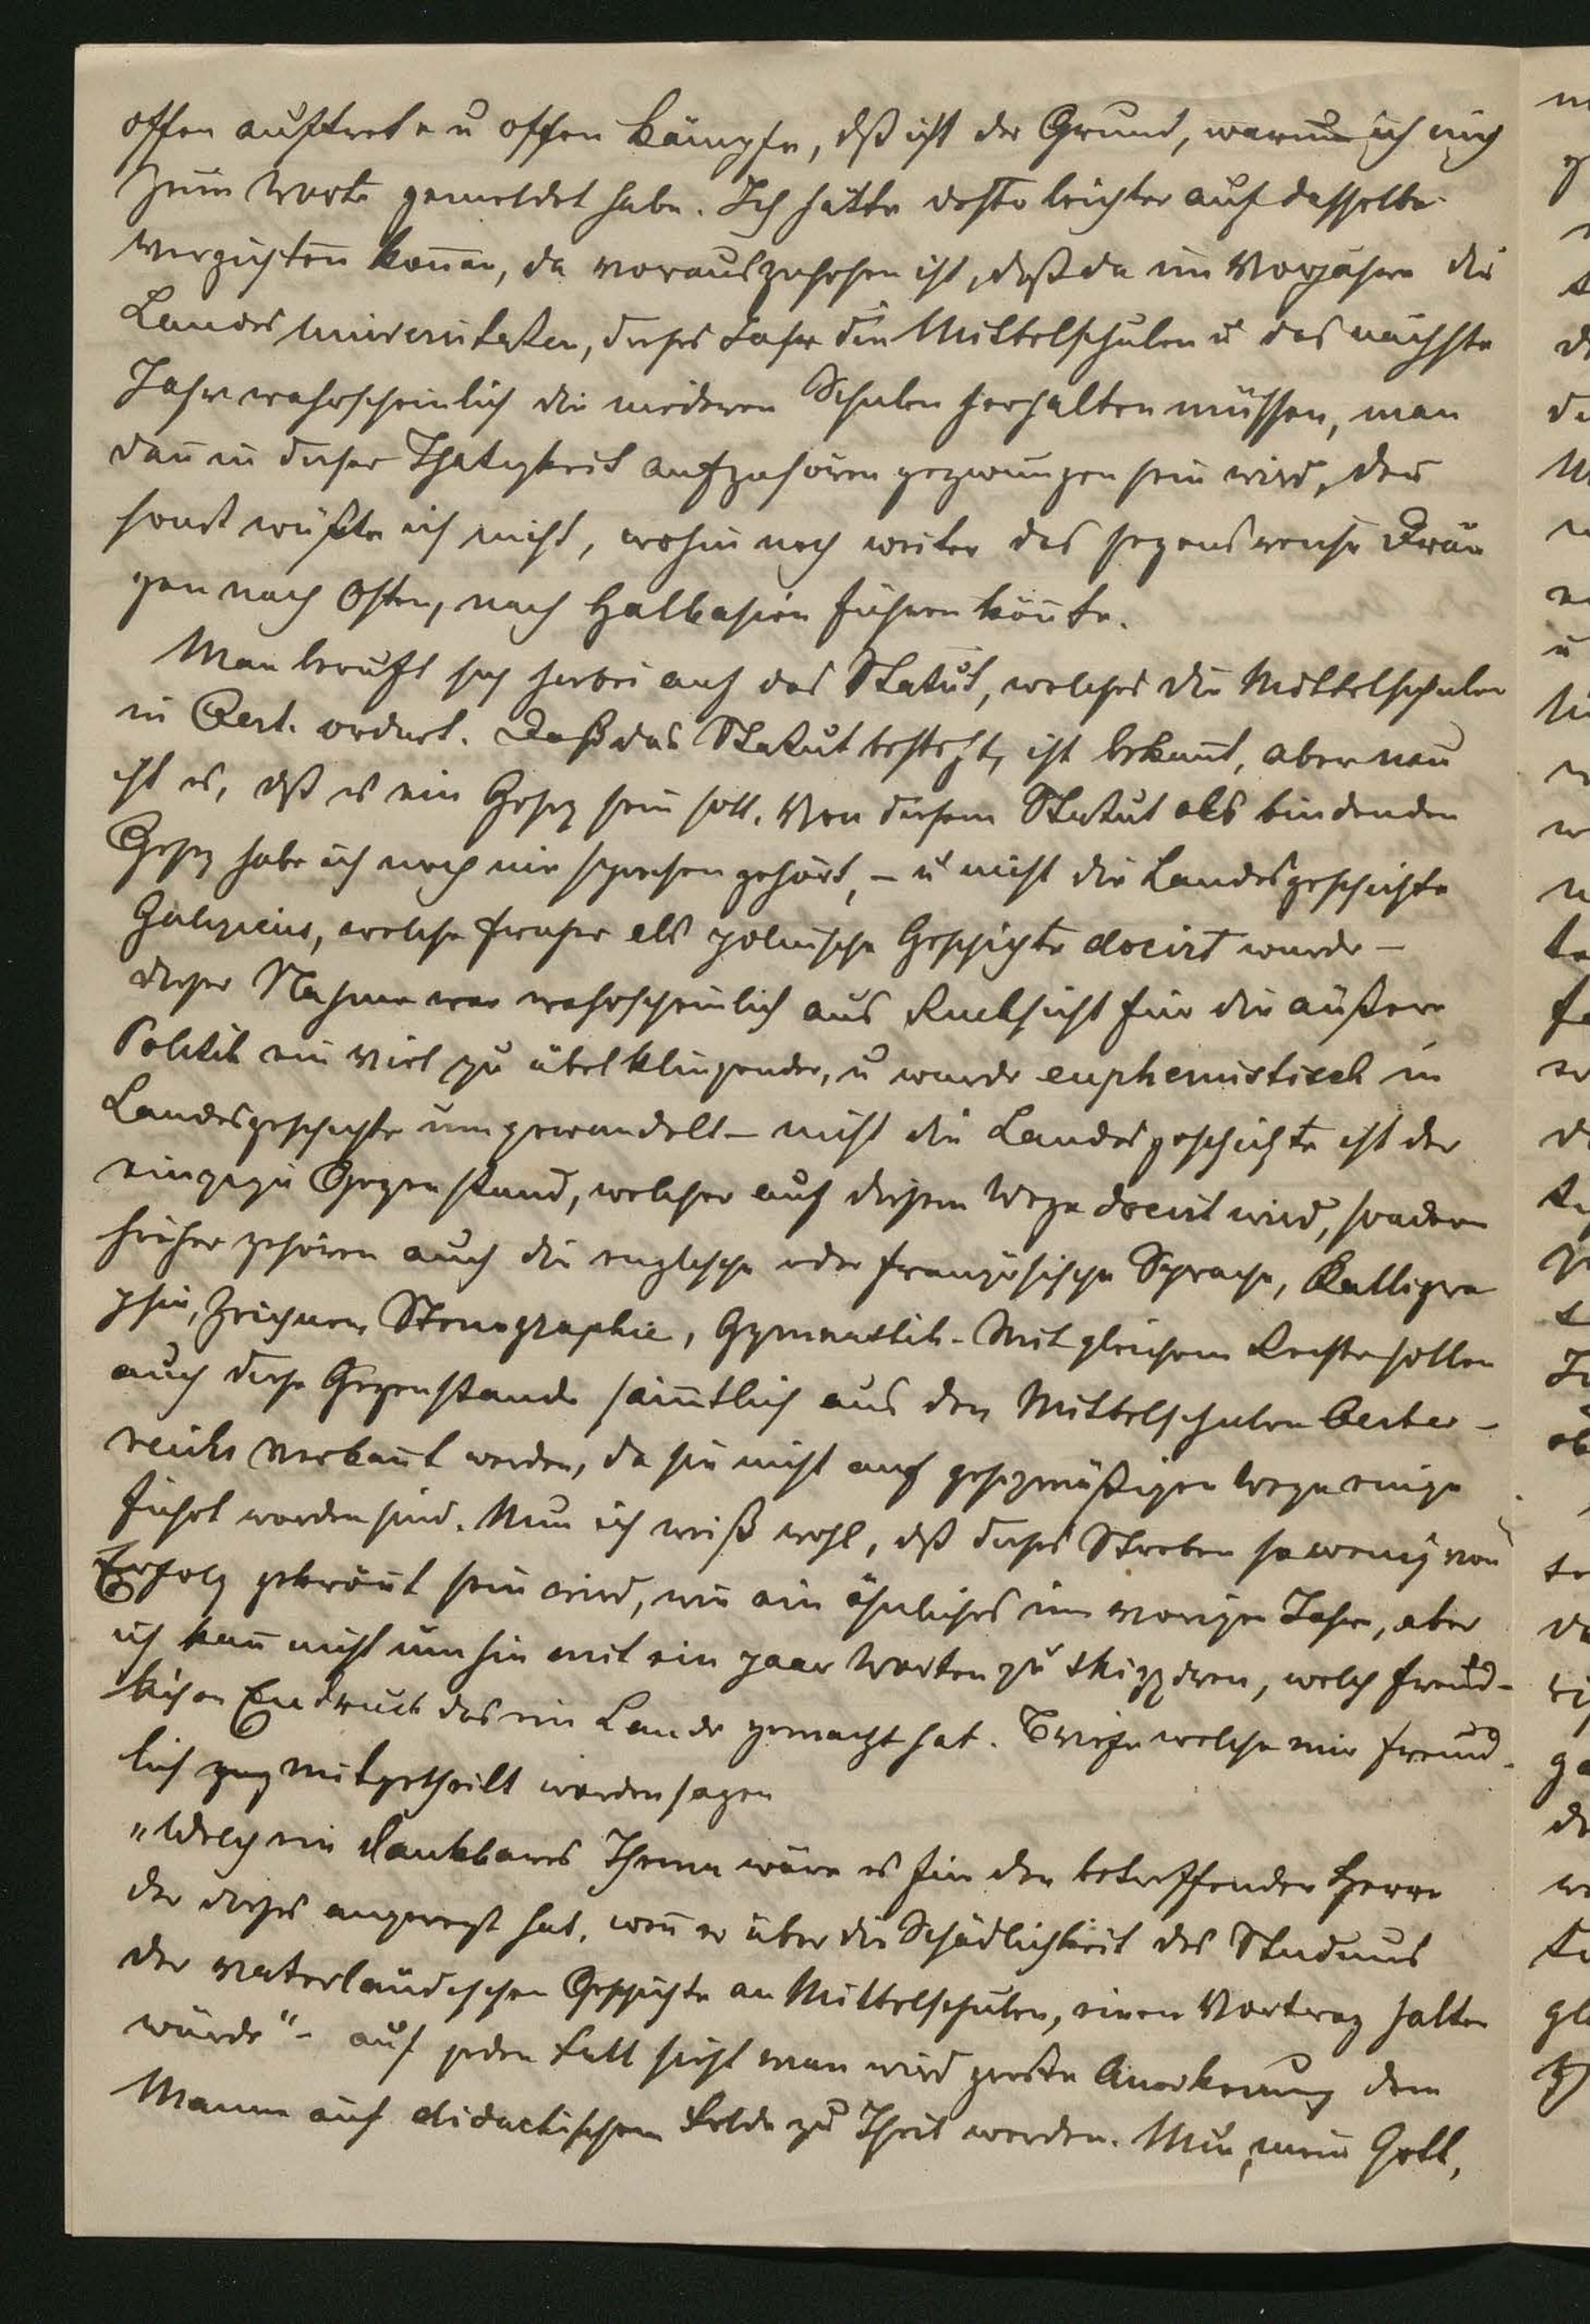 offen auftrete u offen kämpfe, dß ist der Grund, warum ich mich
zum Worte gemeldet habe. Ich hätte desto leichter auf dasselbe
verzichten können, da vorauszusehen ist, daß da im Vorjahre die
Landes Universitäten, dieses Jahr die Mittelschulen u das nächste
Jahr wahrscheinlich die niederen Schulen herhalten müssen, man
dan̄ in dieser Thätigkeit aufzuhören gezwungen sein wird, den̄
sonst wüßte ich nicht, wohin noch weiter das segensreiche Drän
gen nach Osten, nach Halbasien führen kön̄te.
Man beruft sich hierbei auf das Statut, welches die Mittelschulen
in Oest. ordnet. Daß das Statut besteht, ist bekan̄t, aber neu
ist es, dß es ein Gesez sein soll. Von diesem Statut als bindenden
Gesez habe ich noch nie sprechen gehört, – u nicht die Landesgeschichte
Galiziens, welche früher als polnische Geschichte docirt wurde –
dieser Nahme war wahrscheinlich aus Rücksicht für die äußere
Politik ein viel zu übelklingender, u wurde euphemistisch in
Landesgeschichte umgewandelt – nicht die Landesgeschichte ist der
einzige Gegenstand, welcher auf diesem Wege docirt wird, sondern
hieher gehören auch die englische oder französische Sprache, Kalligra
phie, Zeichnen, Stenographie, Gymnastik. Mit gleichem Rechte sollen
auch diese Gegenstande säm̄tlich aus den Mittelschulen Oester-
reichs verban̄t werden, da sie nicht auf gesezmäßigen Wege einge
führt worden sind. Nun ich weiß wohl, dß dieses Streben so wenig von
Erfolg gekrönt sein wird, wie ein ähnliches im vorigen Jahre, aber
ich kan̄ nicht umhin mit ein paar Worten zu skizziren, welch freud-
lichen Eindruck das im Lande gemacht hat. Briefe welche mir freund-
lich mitgetheilt worden sagen
„Welch ein dankbares Thema wäre es für den betreffenden Herrn
der dieses angeregt hat, wen̄ er über die Schädlichkeit des Studiums
der vaterländischen Geschichte an Mittelschulen, einen Vortrag halten
würde“ – auf jeden Fall sieht man wird große Anerkenung dem
Manne auf didactischem Felde zu Theil werden. Nun, mein Gott,